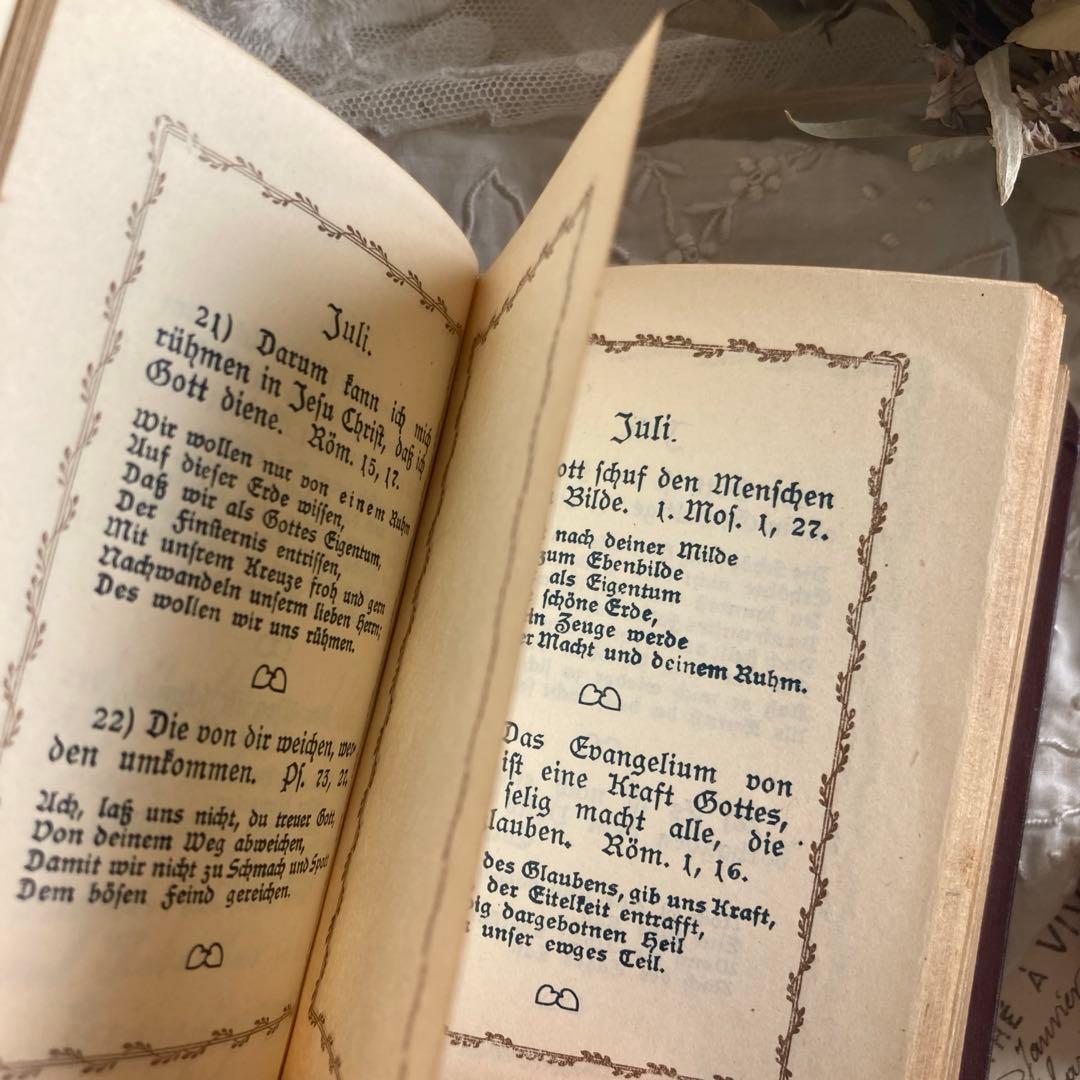 Juli.
21) Darum kann ich mich
rühmen in Jesu Christ, daß ich
Gott diene. Röm. 15, 17.
Wir wollen nur von einem Ruhm
Auf dieser Erde wissen,
Daß wir als Gottes Eigentum,
Der Finsternis entrissen,
Mit unsrem Kreuze froh und gern
Nachwandeln unserm lieben Herrn;
Des wollen wir uns rühmen.
22) Die von dir weichen, wer-
den umkommen. Ps. 73,
Ach, laß uns nicht, du treuer Gott,
Von deinem Weg abweichen,
Damit wir nicht zu Schmach und Spott
Dem bösen Feind gereichen.
Juli.
ott schuf den Menschen
Bilde. 1. Mos. 1, 27.
nach deiner Milde
zum Ebenbilde
als Eigentum
schöne Erde,
in Zeuge werde
er Macht und deinem Ruhm.
Das Evangelium von
ist eine Kraft Gottes,
selig macht alle, die
lauben. Röm. 1, 16.
des Glaubens, gib uns Kraft,
der Eitelkeit entrafft,
ig dargebotnen Heil
unser ewges Teil.
É À VIN
Janvier